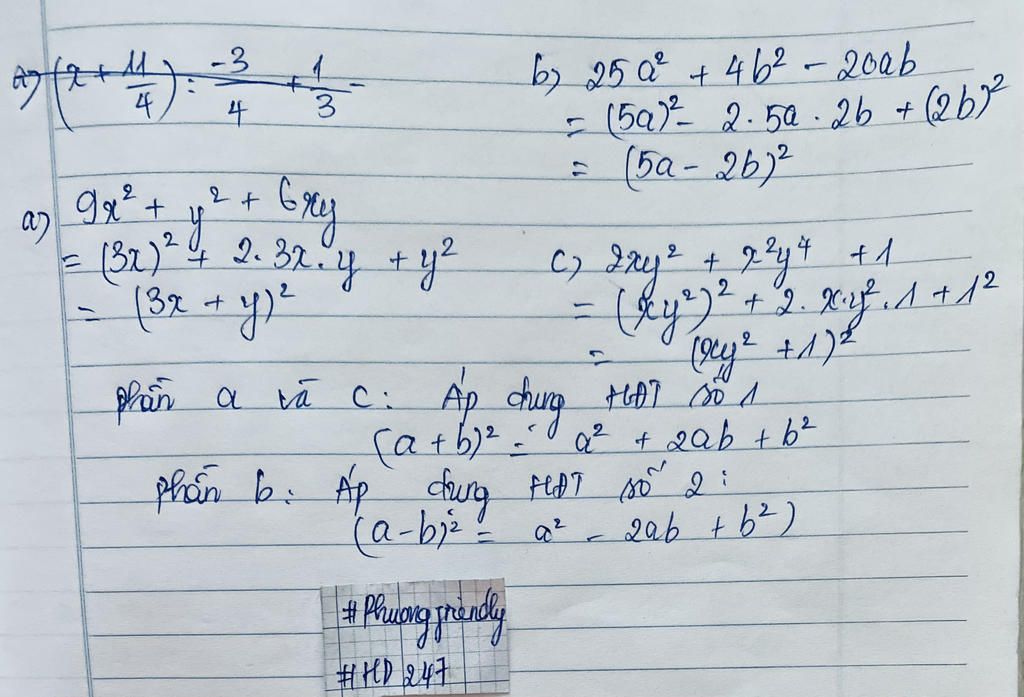 a) (x + 11/4) : -3/4 + 1/3 -
b) 25a² + 4b² - 20ab
= (5a)² - 2.5a.2b + (2b)²
= (5a - 2b)²
a) 9x² + y² + 6xy
= (3x)² + 2.3x.y + y²
= (3x + y)²
c) 2xy² + x²y⁴ + 1
= (xy²)² + 2.x.y².1 + 1²
= (xy² + 1)²
phần a và c: Áp dụng HĐT số 1
(a + b)² = a² + 2ab + b²
phần b: Áp dụng HĐT số 2:
(a - b)² = a² - 2ab + b²)
#Phuongfriendly
#HD247